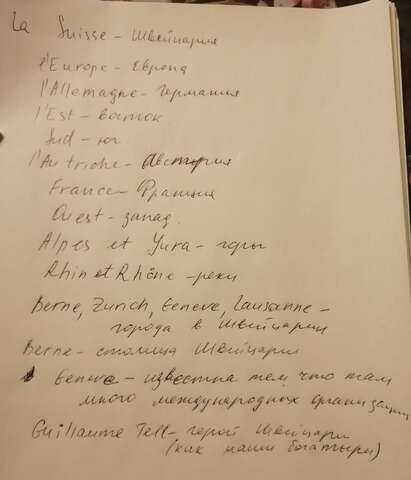 La Suisse - Швейцария
l'Europe - Европа
l'Allemagne - Германия
l'Est - восток
Sud - юг
l'Autriche - Австрия
France - Франция
Ouest - запад.
Alpes et Yura - горы
Rhin et Rhône - реки
Berne, Zurich, Geneve, Lausanne -
города в Швейцарии
Berne - столица Швейцарии
Geneve - известна тем что там
много международных организации
Guillaume Tell - герой Швейцари
(как наши богатыри)